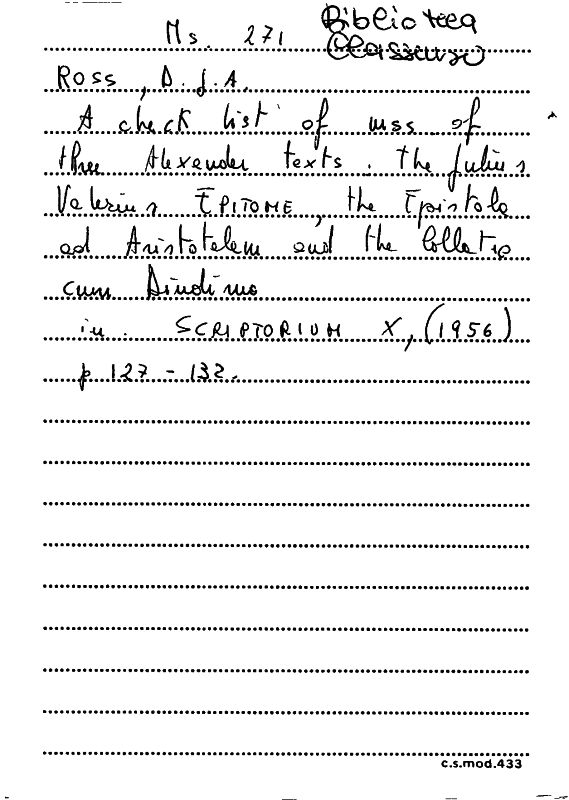 Ms. 271 Biblioteca
Classense
Ross, D.J.A.
A check list of mss of
three Alexander texts. The Julius
Valerius EPITOME, the Epistola
ad Aristotelem and the Collatio
cum Dindimo
in. SCRIPTORIUM X, (1956)
p 127 - 132.
c.s.mod.433